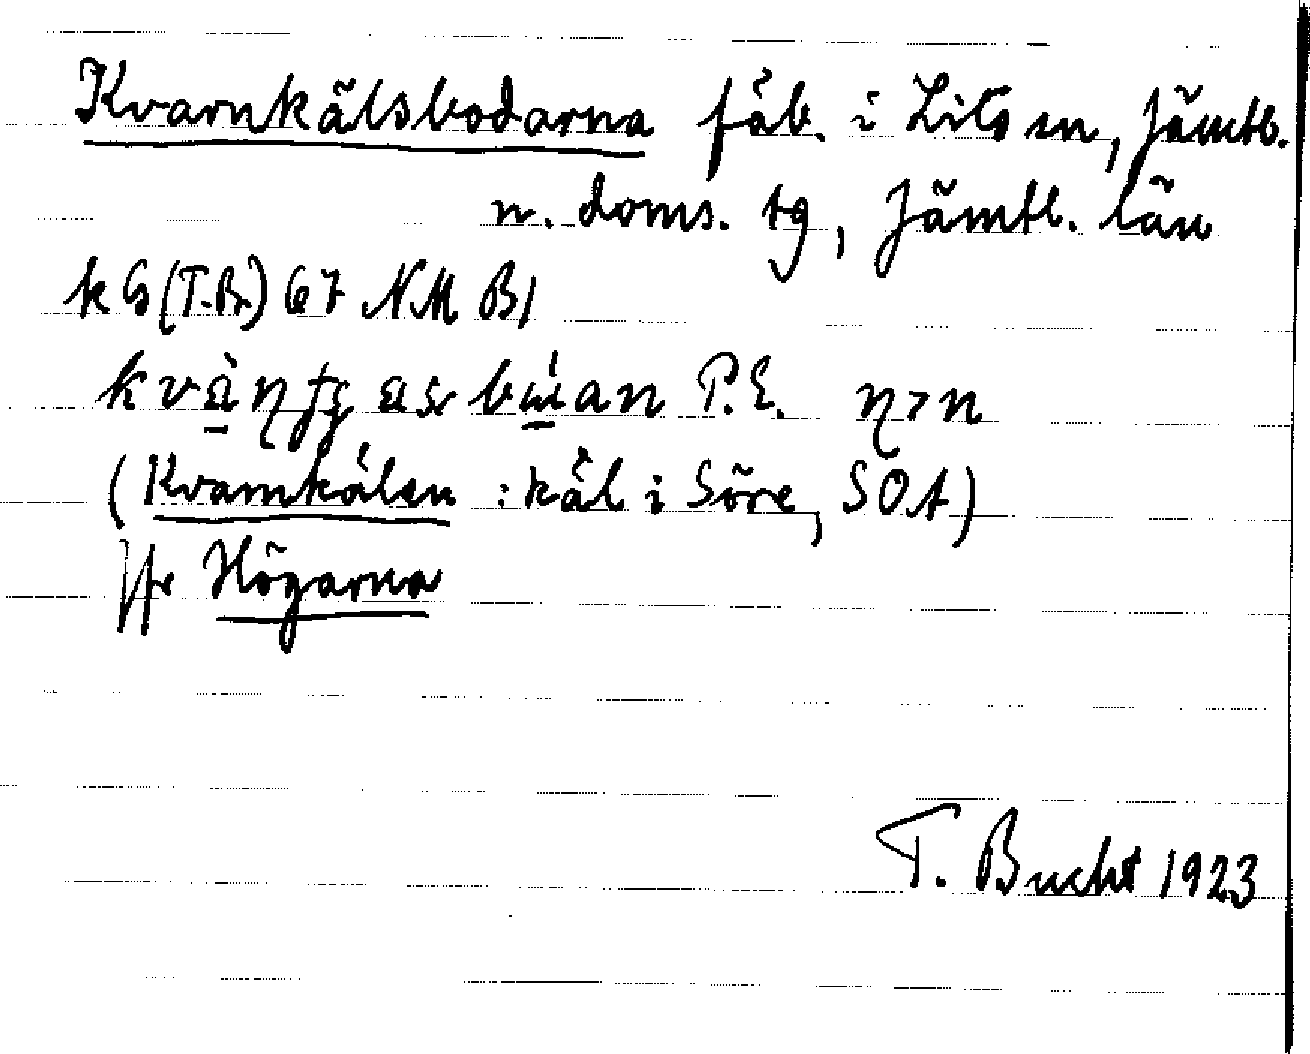 Kvarnkälsbodarna fäb. i Lits sn, Jämtl.
n. doms. tg, Jämtl. län
kG (T.Br.) 67 NM B1
P.E. η>n
(Kvarnkälen : käl i Söre, SOA)
Jfr Högarna
T. Bucht 1923